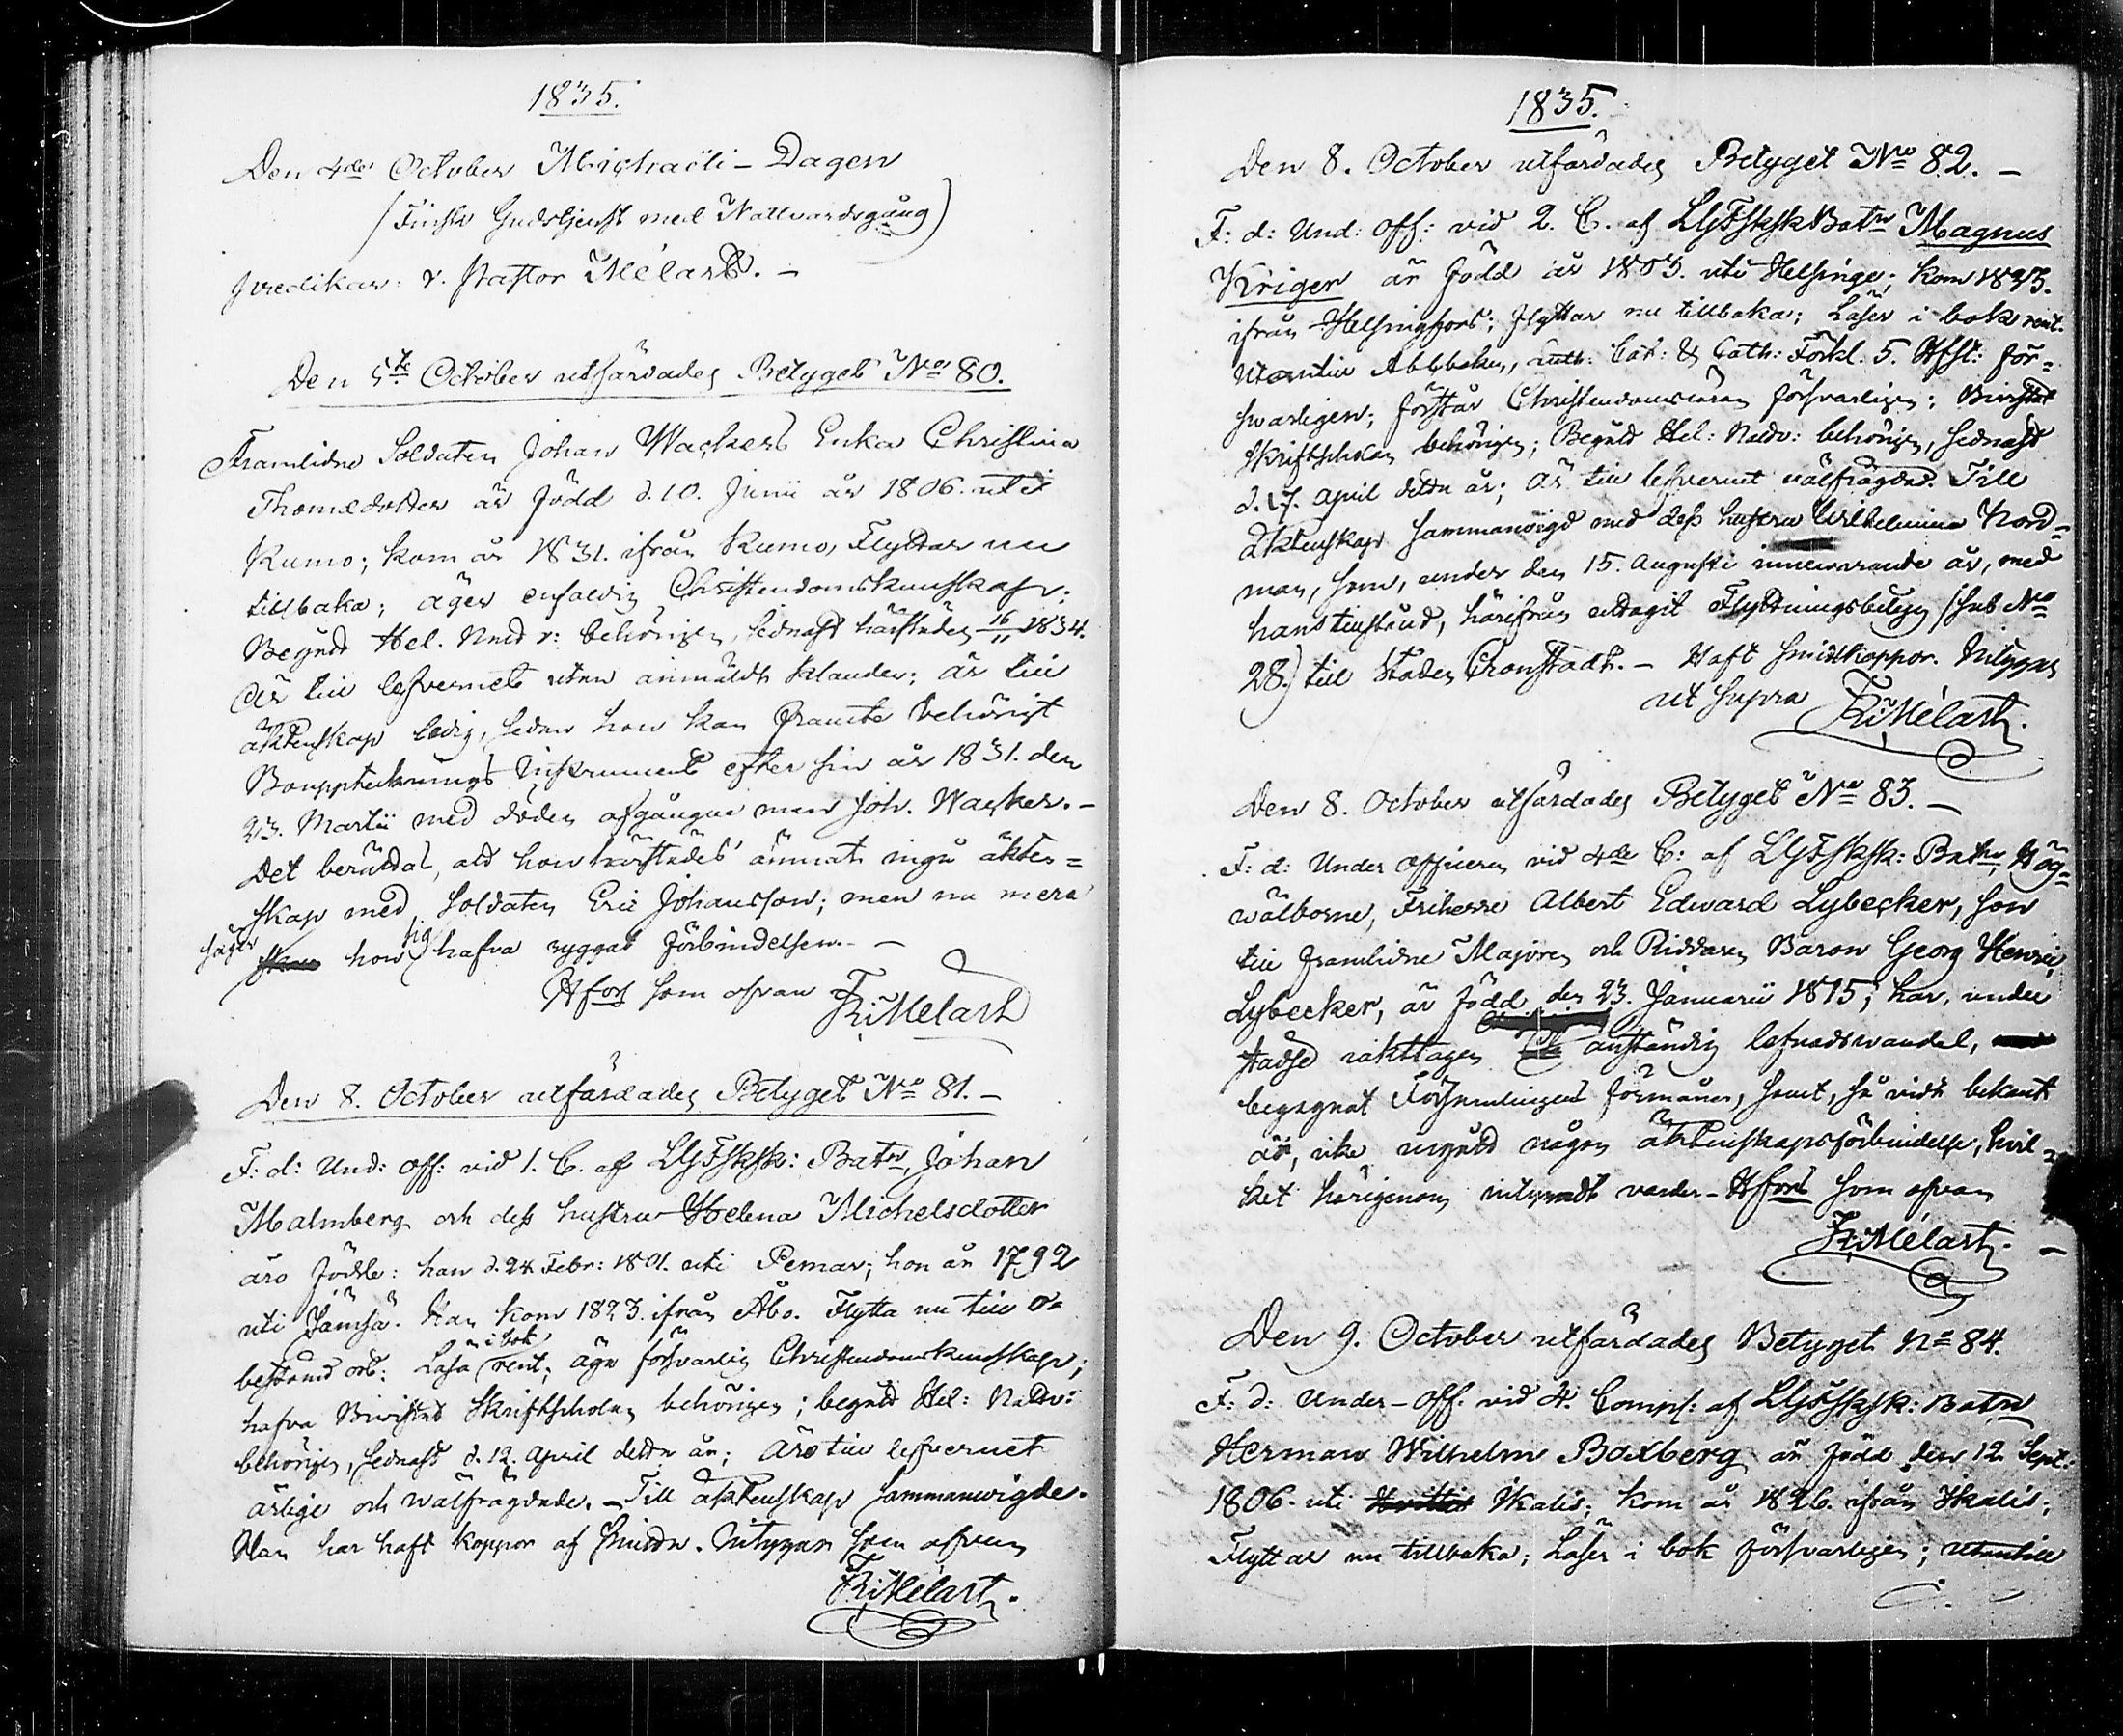 1835.
Den 4de October Michaëli-Dagen
(Finsk Gudstjenst med Nattvardsgång)
predikar: v. Pastor Mélart. -
Den 5te October utfärdades Betyget No 80.
Framlidne Soldaten Johan Wackers Enka Christina
Thomædotter är född d. 10. Junii år 1806. uti
Kumo; kom år 1831. ifrån Kumo, Flyttar nu
tillbaka; äger enfaldig Christendomskunskap;
Begådt Hel. Nattv: behörigen, sednast härstädes 16/11 1834.
Är till lefvernet utan anmäldt klander; är till
äktenskap ledig, sedan hon kan framte behörigt
Bouppteknings Instrument efter sin år 1831. den
23. Martii med döden afgångne man Joh. Wacker. -
Det berättas, att hon härstädes ämnat ingå äkten=
skap med Soldaten Eric Johansson; men nu mera
säger hon sig hafva ryggat förbindelsen. -
Hfors som ofvan
F. R. Mélart
Den 8. October utfärdades Betyget No 81. -
F: d: Und: Off: vid 1. C. af LGFSksk: Batn, Johan
Malmberg och dess hustru Helena Michelsdotter
äro födde: han d. 24 Febr: 1801. uti Pemar; hon år 1792
uti Jämsä. Han kom 1823. ifrån Åbo. Flytta nu till o=
bestämd ort: Läsa i bok rent; äga försvarlig Christendomskunskap;
hafva Bivistat Skriftskolan behörigen; begådt Hel: Nattv:
behörigen, sednast d. 12. April detta år; Äro till lefvernet
ärlige och wälfrägdade. - Till äktenskap sammanvigde.
Han har haft koppor af smitta. Intygar som ofvan
F. R. Mélart.
1835.
Den 8. October utfärdades Betyget No 82. -
F: d: Und: Off: vid 2. C. af LGFSksk Batn Magnus
Kriger är född år 1803. uti Helsinge; kom 1823.
ifrån Helsingfors; flyttar nu tillbaka; Läser i bok rent.
Utantill Abcboken, Luth: Cat: & Cath: Förkl. 5. Hfst: för=
svarligen; förstår Christendomsläran försvarligen; Bivistat
Skriftskolan behörigen; Begådt Hel: Nattv: behörigen, sednast
d. 17. April detta år; Är till lefvernet välfrägdad. Till
äktenskap sammanvigd med dess hustru Wilhelmina Nord=
man, som, under den 15. Augusti innevarande år, med
hans tillstånd, härifrån uttagit Flyttningsbetyg (sub No
28.) till Staden Cronstadt. - Haft smittkoppor. Intygas
ut supra F. R. Mélart.
Den 8. October utfärdades Betyget No 83. -
F: d: Under Officeren vid 4de C: af LGFSksk: Batn, Hög=
wälborne, Friherre Albert Edward Lybecker, son
till framlidne Majoren och Riddaren Baron Georg Henric
Lybecker, är född den 23. Januarii 1815; har, under
iakttagen anständig lefnadswandel,
begagnat Församlingens förmåner, samt, så vidt bekant
är, icke ingått någon äktenskapsförbindelse, hvil=
ket härigenom intygadt varder - Hfors som ofvan
F. R. Mélart. -
Den 9. October utfärdades Betyget No 84.
F: d: Under-Off. vid 4. Comp: af LGFSksk: Batn
Herman Wilhelm Boxberg är född den 12 Sept.
1806. uti Ikalis; kom år 1826. ifrån Ikalis;
Flyttar nu tillbaka; Läser i bok försvarligen; utantill